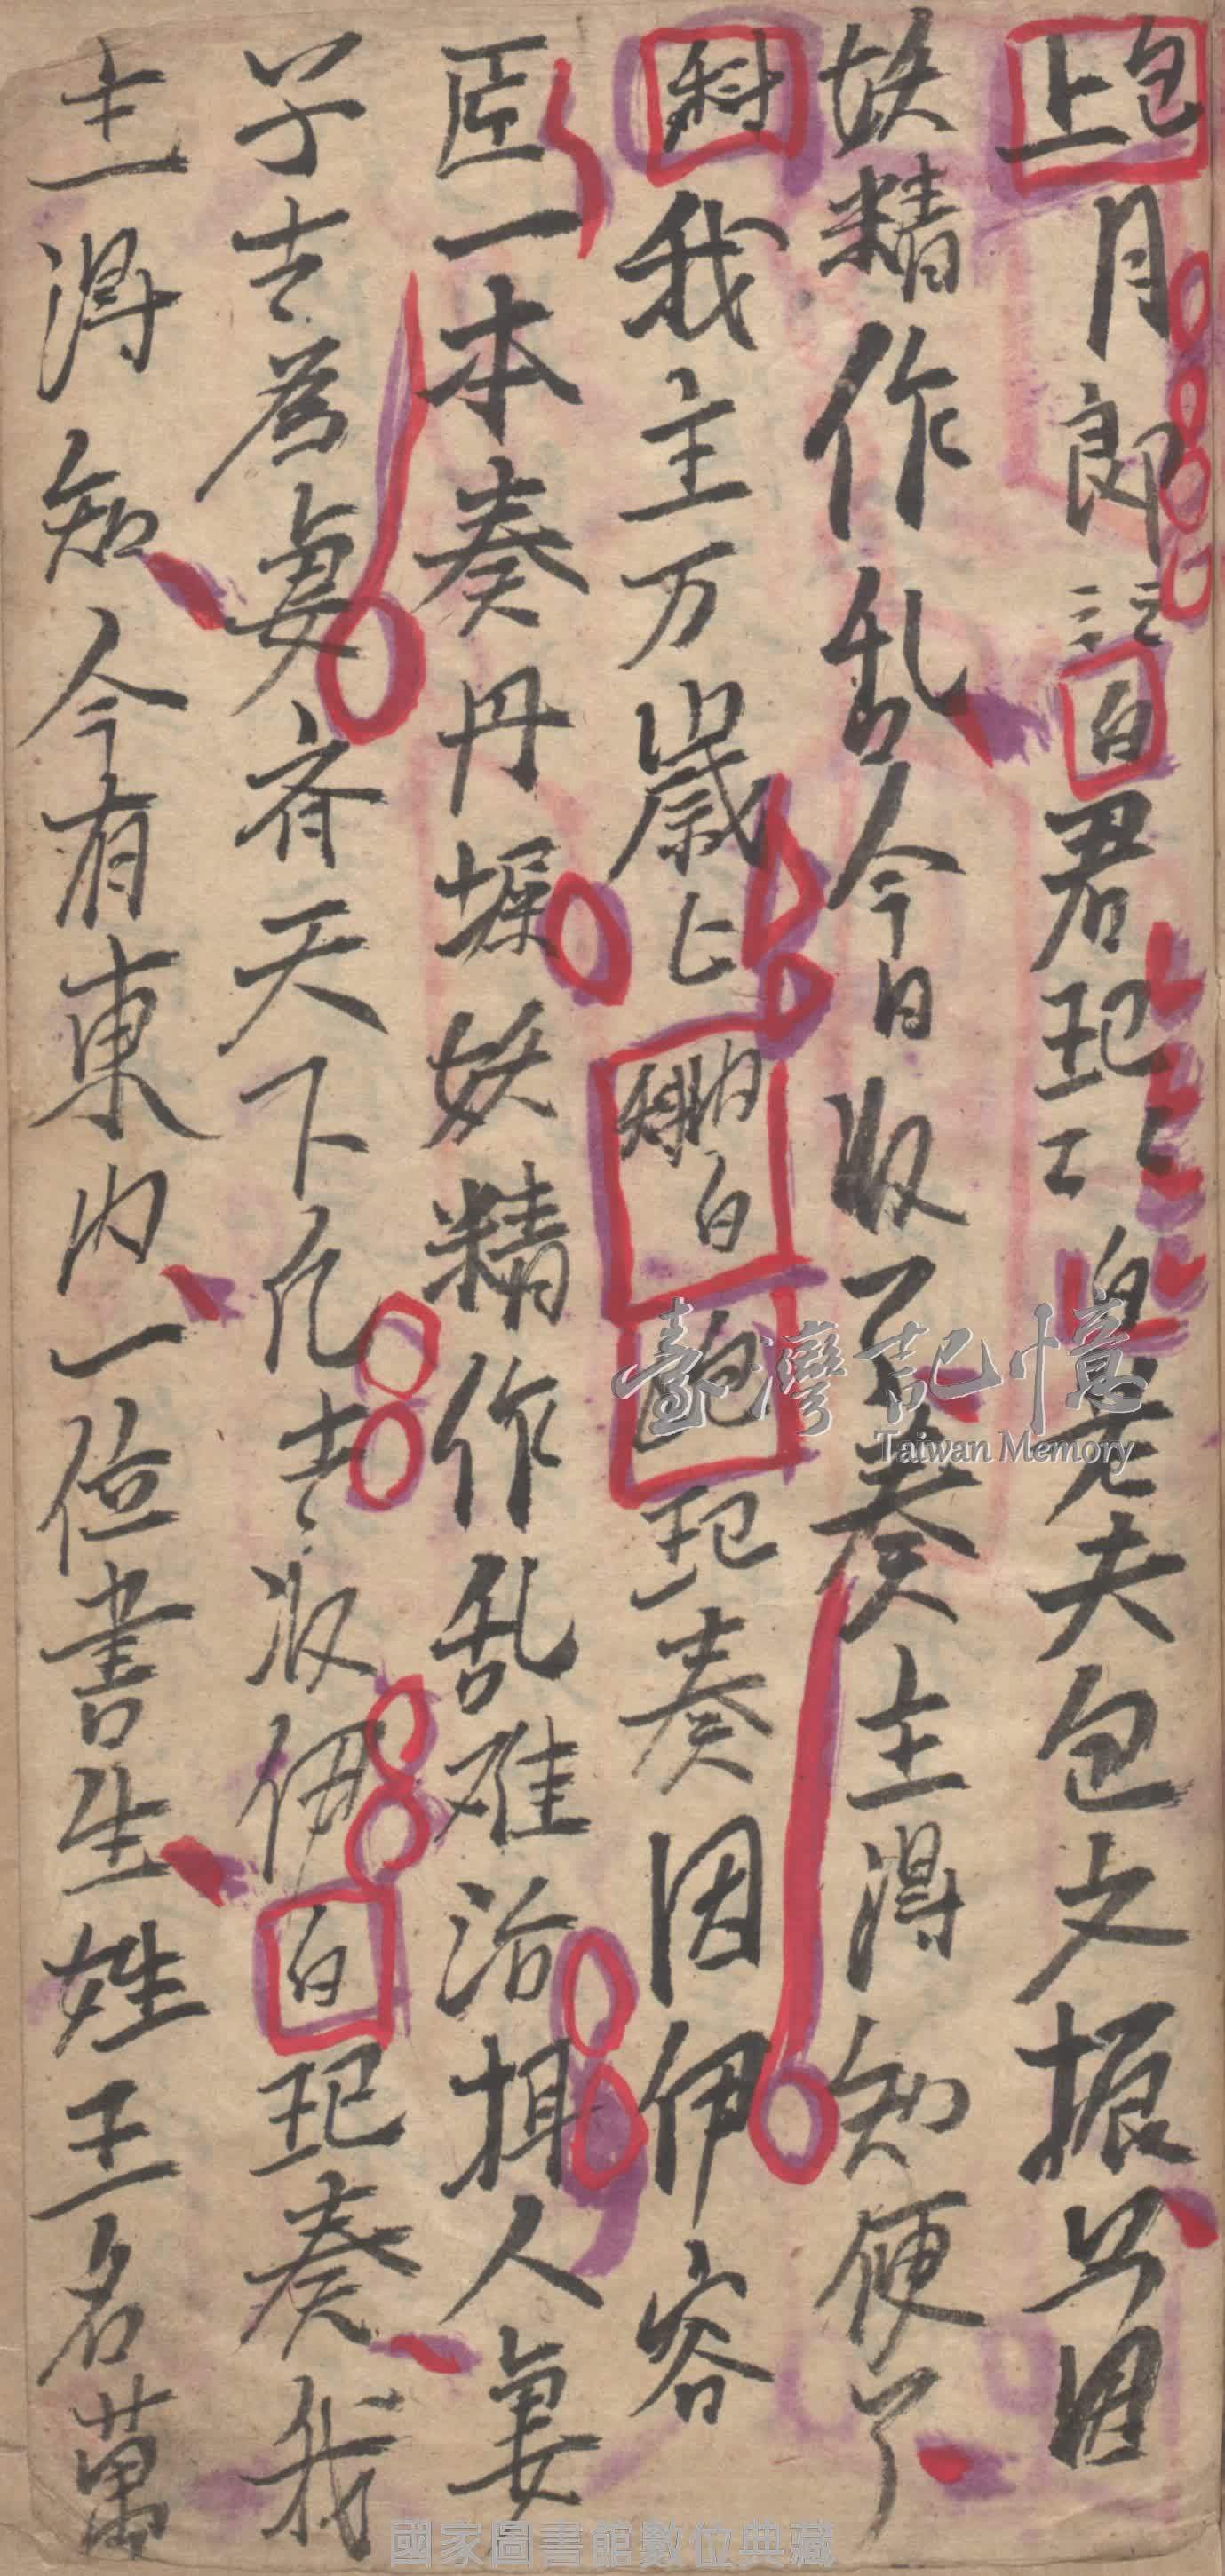 包上月郎〻〻白君圯〻〻皂老夫包文振只因
妖精作乱今日收了奏主得知便了
科我主万歲上白包圯奏因伊容
匠一本奏丹墀妖精作乱难治損人妻
子去為妻齐天下凡去收伊白圯奏我
主得知今有東内一位書生姓王名萬
臺灣記憶
Taiwan Memory
國家圖書館數位典藏